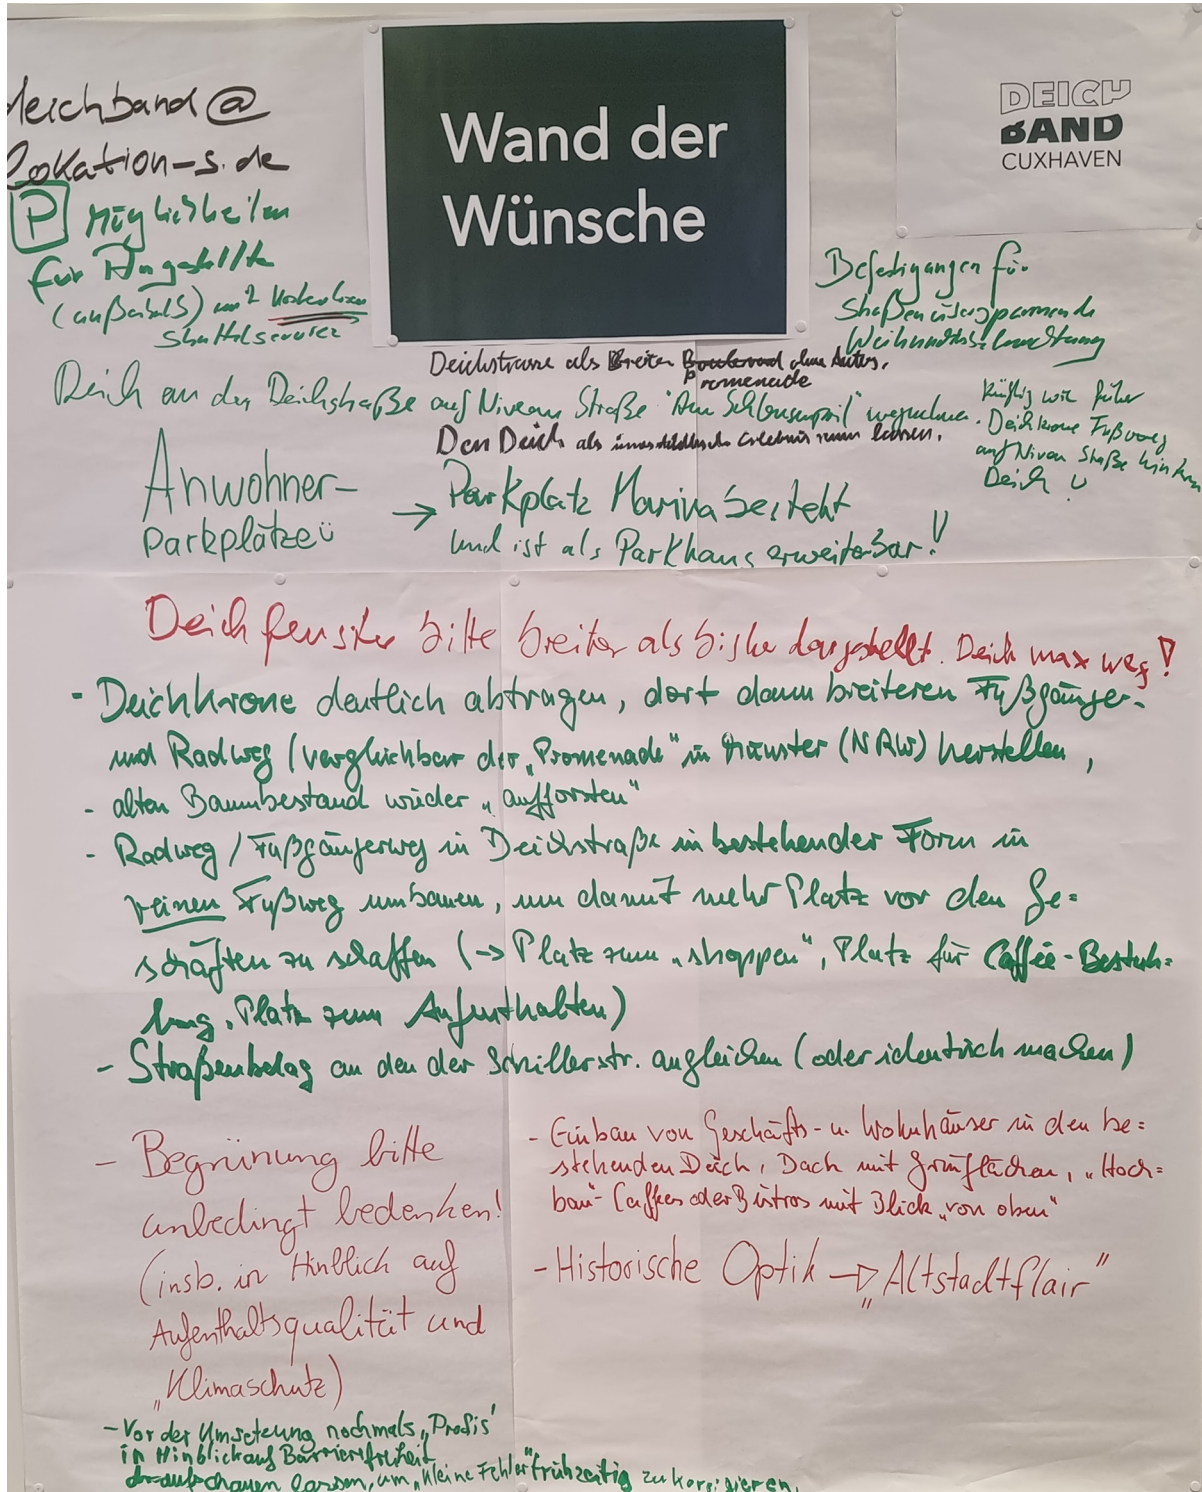 Wand der
Wünsche
DEICH
BAND
CUXHAVEN
deichband@
lokation-s.de
P Möglichkeiten
für Angestellte
(außerhalb) mit kostenlosen
Shuttleservice
Befestigungen für
Straßenüberspannende
Weihnachtsbeleuchtung
Deichstrasse als breiten Boulevard ohne Autos.
Promenade
Deich an der Deichstraße auf Niveau Straße "Am Schleusenpriel" wegnehmen.
Den Deich als Erlebnis lassen.
Künftig wie früher
Deichkrone Fußweg
auf Niveau Straße hinterm
Deich
Anwohner-
parkplätze
→ Parkplatz Marina besteht
und ist als Parkhaus erweiterbar!
Deichfenster bitte breiter als bisher dargestellt. Deich max weg!
- Deichkrone deutlich abtragen, dort dann breiteren Fußgänger-
und Radweg (vergleichbar der „Promenade" in Münster (NRW) herstellen,
- alten Baumbestand wieder „aufforsten"
- Radweg / Fußgängerweg in Deichstraße in bestehender Form in
reinen Fußweg umbauen, um damit mehr Platz vor den Ge=
schäften zu schaffen (→ Platz zum „shoppen", Platz für Caffee-Bestuh=
lung, Platz zum Aufenthalten)
- Straßenbelag an den der Schillerstr. angleichen (oder identisch machen)
- Begrünung bitte
unbedingt bedenken!
(insb. in Hinblick auf
Aufenthaltsqualität und
„Klimaschutz)
- Einbau von Geschäfts- u. Wohnhäuser in den be=
stehenden Deich, Dach mit Grünflächen, „Hoch=
bau"- Caffees oder Bistros mit Blick „von oben"
- Historische Optik → „Altstadtflair"
- Vor der Umsetzung nochmals „Profis'
in Hinblick auf Barrierefreiheit
draufschauen lassen, um „kleine Fehler" frühzeitig zu korrigieren.